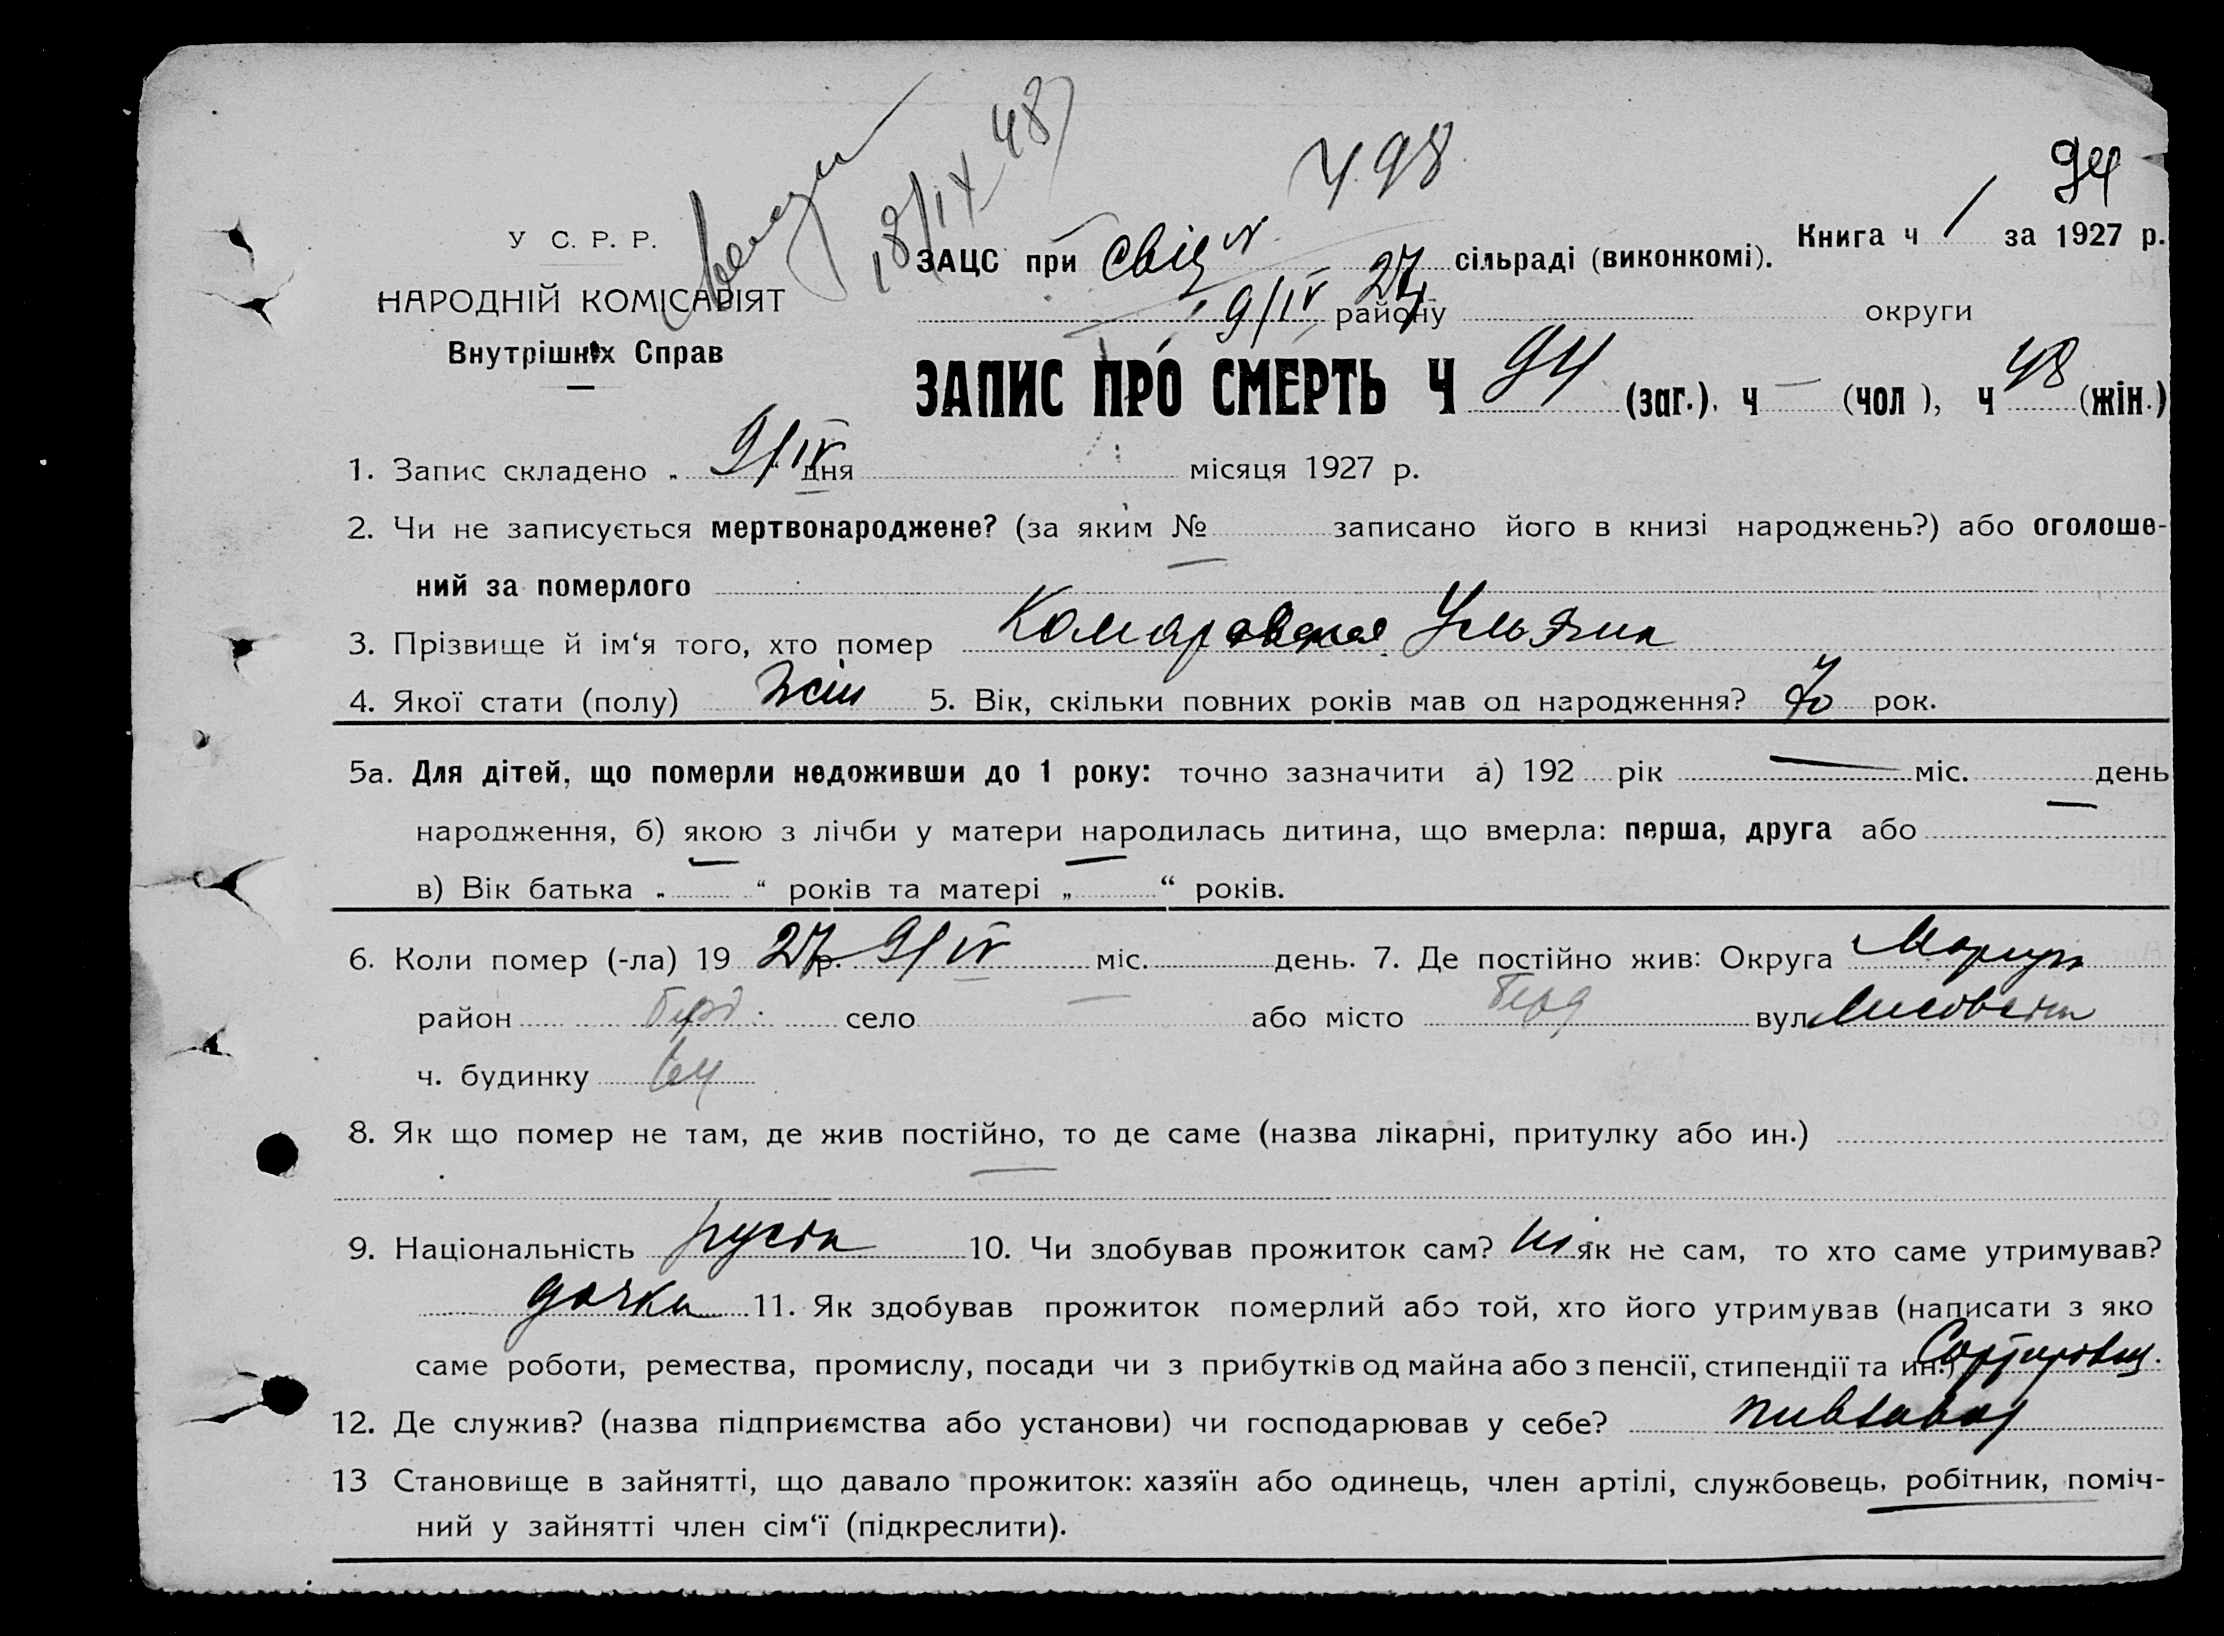 498
18/IX 48
94
У С. Р. Р.
НАРОДНІЙ КОМІСАРІЯТ
Внутрішніх Справ
Книга ч 1 за 1927 р.
ЗАЦС при сільраді (виконкомі).
9/IV 27 району округи
ЗАПИС ПРО СМЕРТЬ Ч 94 (заг.), ч — (чол), ч 48 (жін.)
1. Запис складено „ 9/IV “ дня місяця 1927 р.
2. Чи не записується мертвонароджене? (за яким № записано його в книзі народжень?) або оголоше-
ний за померлого —
3. Прізвище й ім‘я того, хто помер Комаровская Ульяна
4. Якої стати (полу) Жін 5. Вік, скільки повних років мав од народження? рок.
5а. Для дітей, що померли недоживши до 1 року: точно зазначити а) 192 рік — міс. день
народження, б) якою з лічби у матери народилась дитина, що вмерла: перша, друга або —
в) Вік батька „ — “ років та матері „ — “ років.
6. Коли помер (-ла) 19 27 р. 9/IV міс. день. 7. Де постійно жив: Округа Мариуп
район Берд. село — або місто Берд вул.
ч. будинку 64
8. Як що помер не там, де жив постійно, то де саме (назва лікарні, притулку або ин.)
—
9. Національність руська 10. Чи здобував прожиток сам? ні як не сам, то хто саме утримував?
дочка 11. Як здобував прожиток померлий або той, хто його утримував (написати з яко
саме роботи, ремества, промислу, посади чи з прибутків од майна або з пенсії, стипендії та ин.) Сортировщ.
12. Де служив? (назва підприємства або установи) чи господарював у себе? пивзавод
13 Становище в зайнятті, що давало прожиток: хазяїн або одинець, член артілі, службовець, робітник, поміч-
ний у зайнятті член сім‘ї (підкреслити).